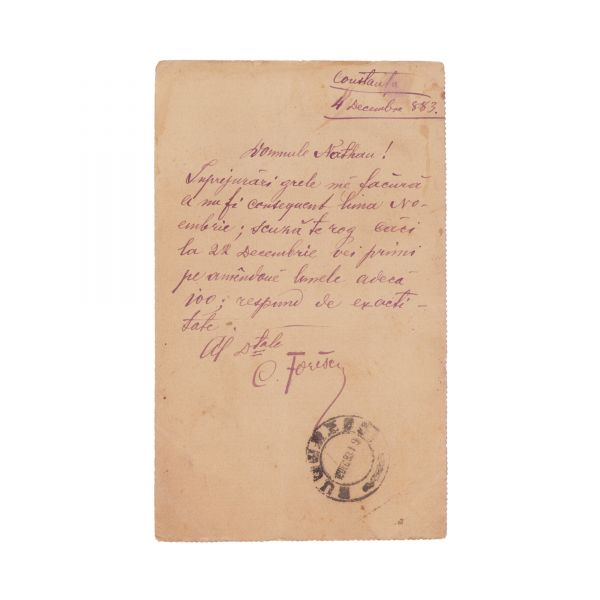 Constanța
4 Decembre 883.
Domnule Nathan!
Inprejurări grele mĕ făcură
a nu fi consequent luna No-
embrie; scuză te rog căci
la 22 Decembrie vei primi
pe amêndouĕ lunele adecă
100; respund de exacti-
tate.
Al Dtale
BUCURESCI